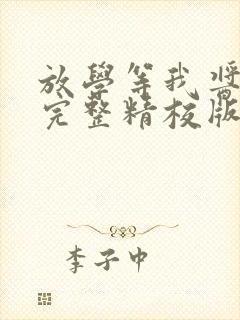 放學等我 醬
完整精校版
李子中